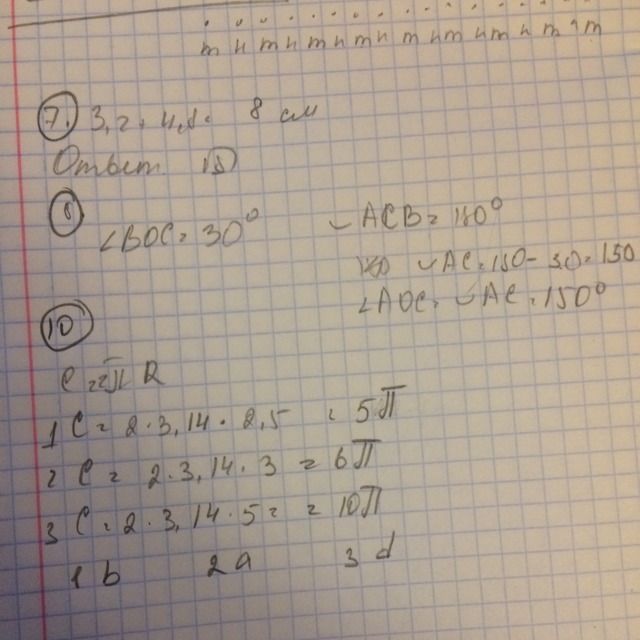 т н т н т н т н т н т н т н т н т
7. 3,2 + 4,8 = 8 см
Ответ
8
∠BOC = 30° ◡ACB = 180°
◡AC = 180 - 30 = 150
∠AOC = ◡AC = 150°
10
C = 2π R
1 C = 2 · 3,14 · 2,5 = 5π
2 C = 2 · 3,14 · 3 = 6π
3 C = 2 · 3,14 · 5 = = 10π
1 b 2 a 3 d